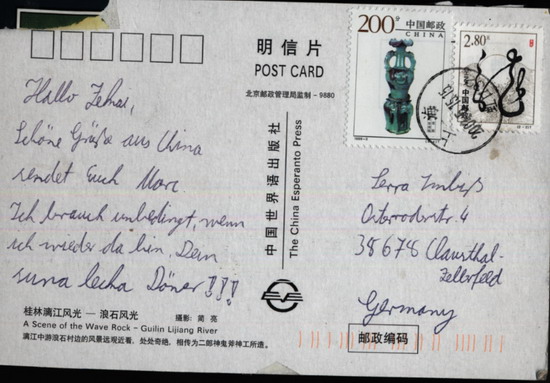 明信片
POST CARD
北京邮政管理局监制－9880
200分
中国邮政
CHINA
2.80元
中国邮政
上海
Hallo Zekai,
Schöne Grüße aus China
sendet Euch Marc
Ich brauch unbedingt, wenn
ich wieder da bin, Dein
suna lecka Döner!!!
中国世界语出版社
The China Esperanto Press
Serra Imbiß
Osteroderstr. 4
38678 Clausthal-
Zellerfeld
Germany
桂林漓江风光 — 浪石风光
摄影: 简 亮
A Scene of the Wave Rock - Guilin Lijiang River
漓江中游浪石村边的风景远观近看，处处奇绝，相传为二郎神鬼斧神工所造。
邮政编码